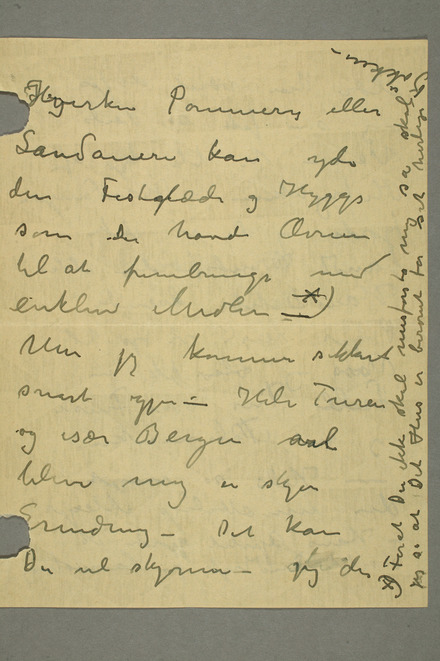 Hverken Pommery eller
Sandauern kan yde
den Festglæde og Hygge
som du havde Ævnen
til at frembringe med
enklere Midler — *)
Men jeg kommer sikkert
snart igen — Hele Turen
og især Bergen vil
blive mig en skøn
Erindring — Det kan
Du vel skjønne — jeg der
*) Forat Du ikke skal misforstaa mig saa skal
jeg si at Det Hus er berømt for sit herlige
Køkken